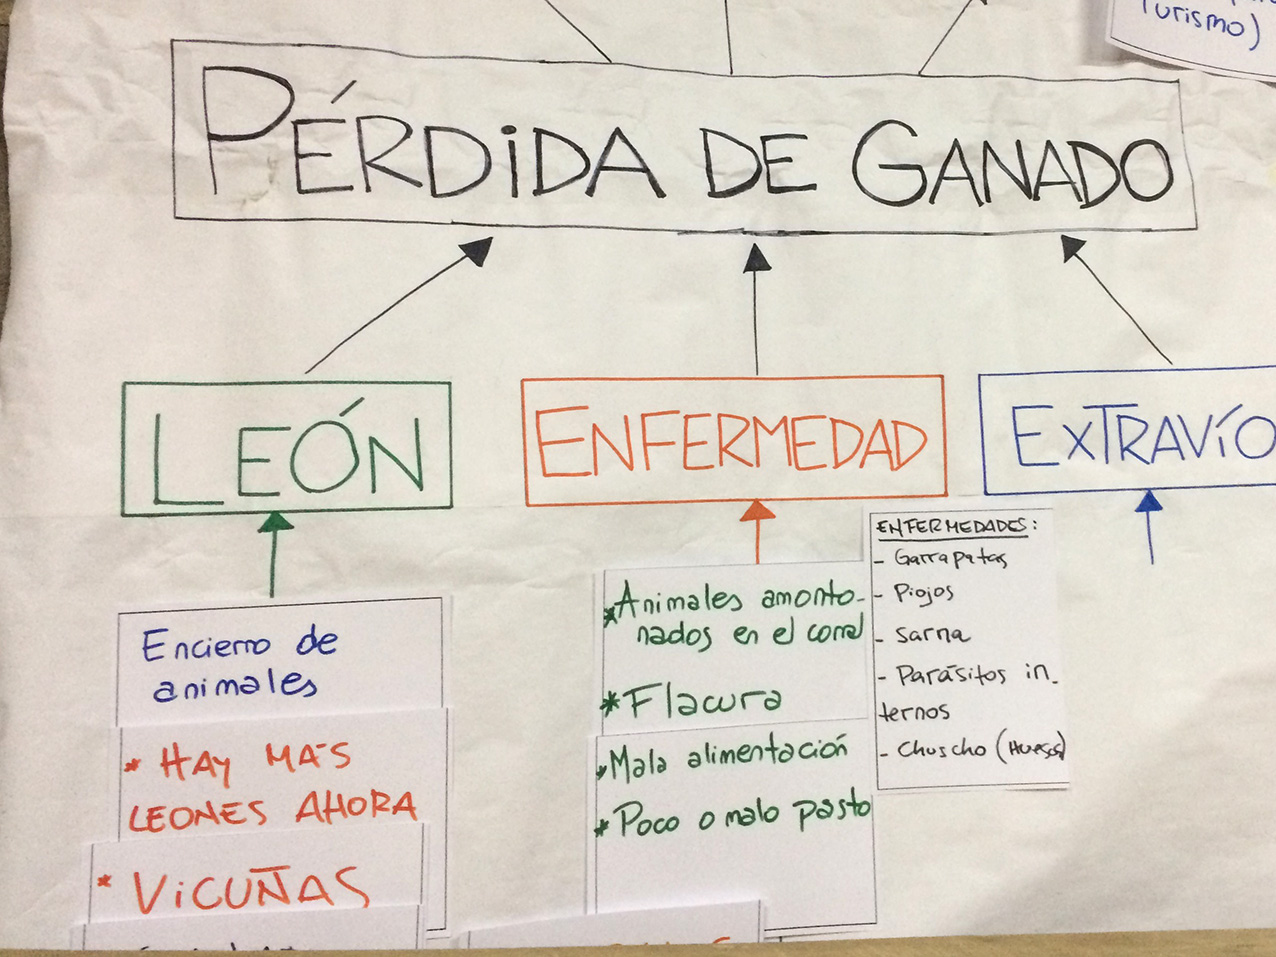 Turismo)
PÉRDIDA DE GANADO
LEÓN
ENFERMEDAD
EXTRAVÍO
Encierro de
animales
* HAY MÁS
LEONES AHORA
* VICUÑAS
*Animales amonto-
nados en el corral
*Flacura
*Mala alimentación
*Poco o malo pasto
ENFERMEDADES:
- Garrapatas
- Piojos
- Sarna
- Parásitos in-
ternos
- Chuscho (HUESOS)